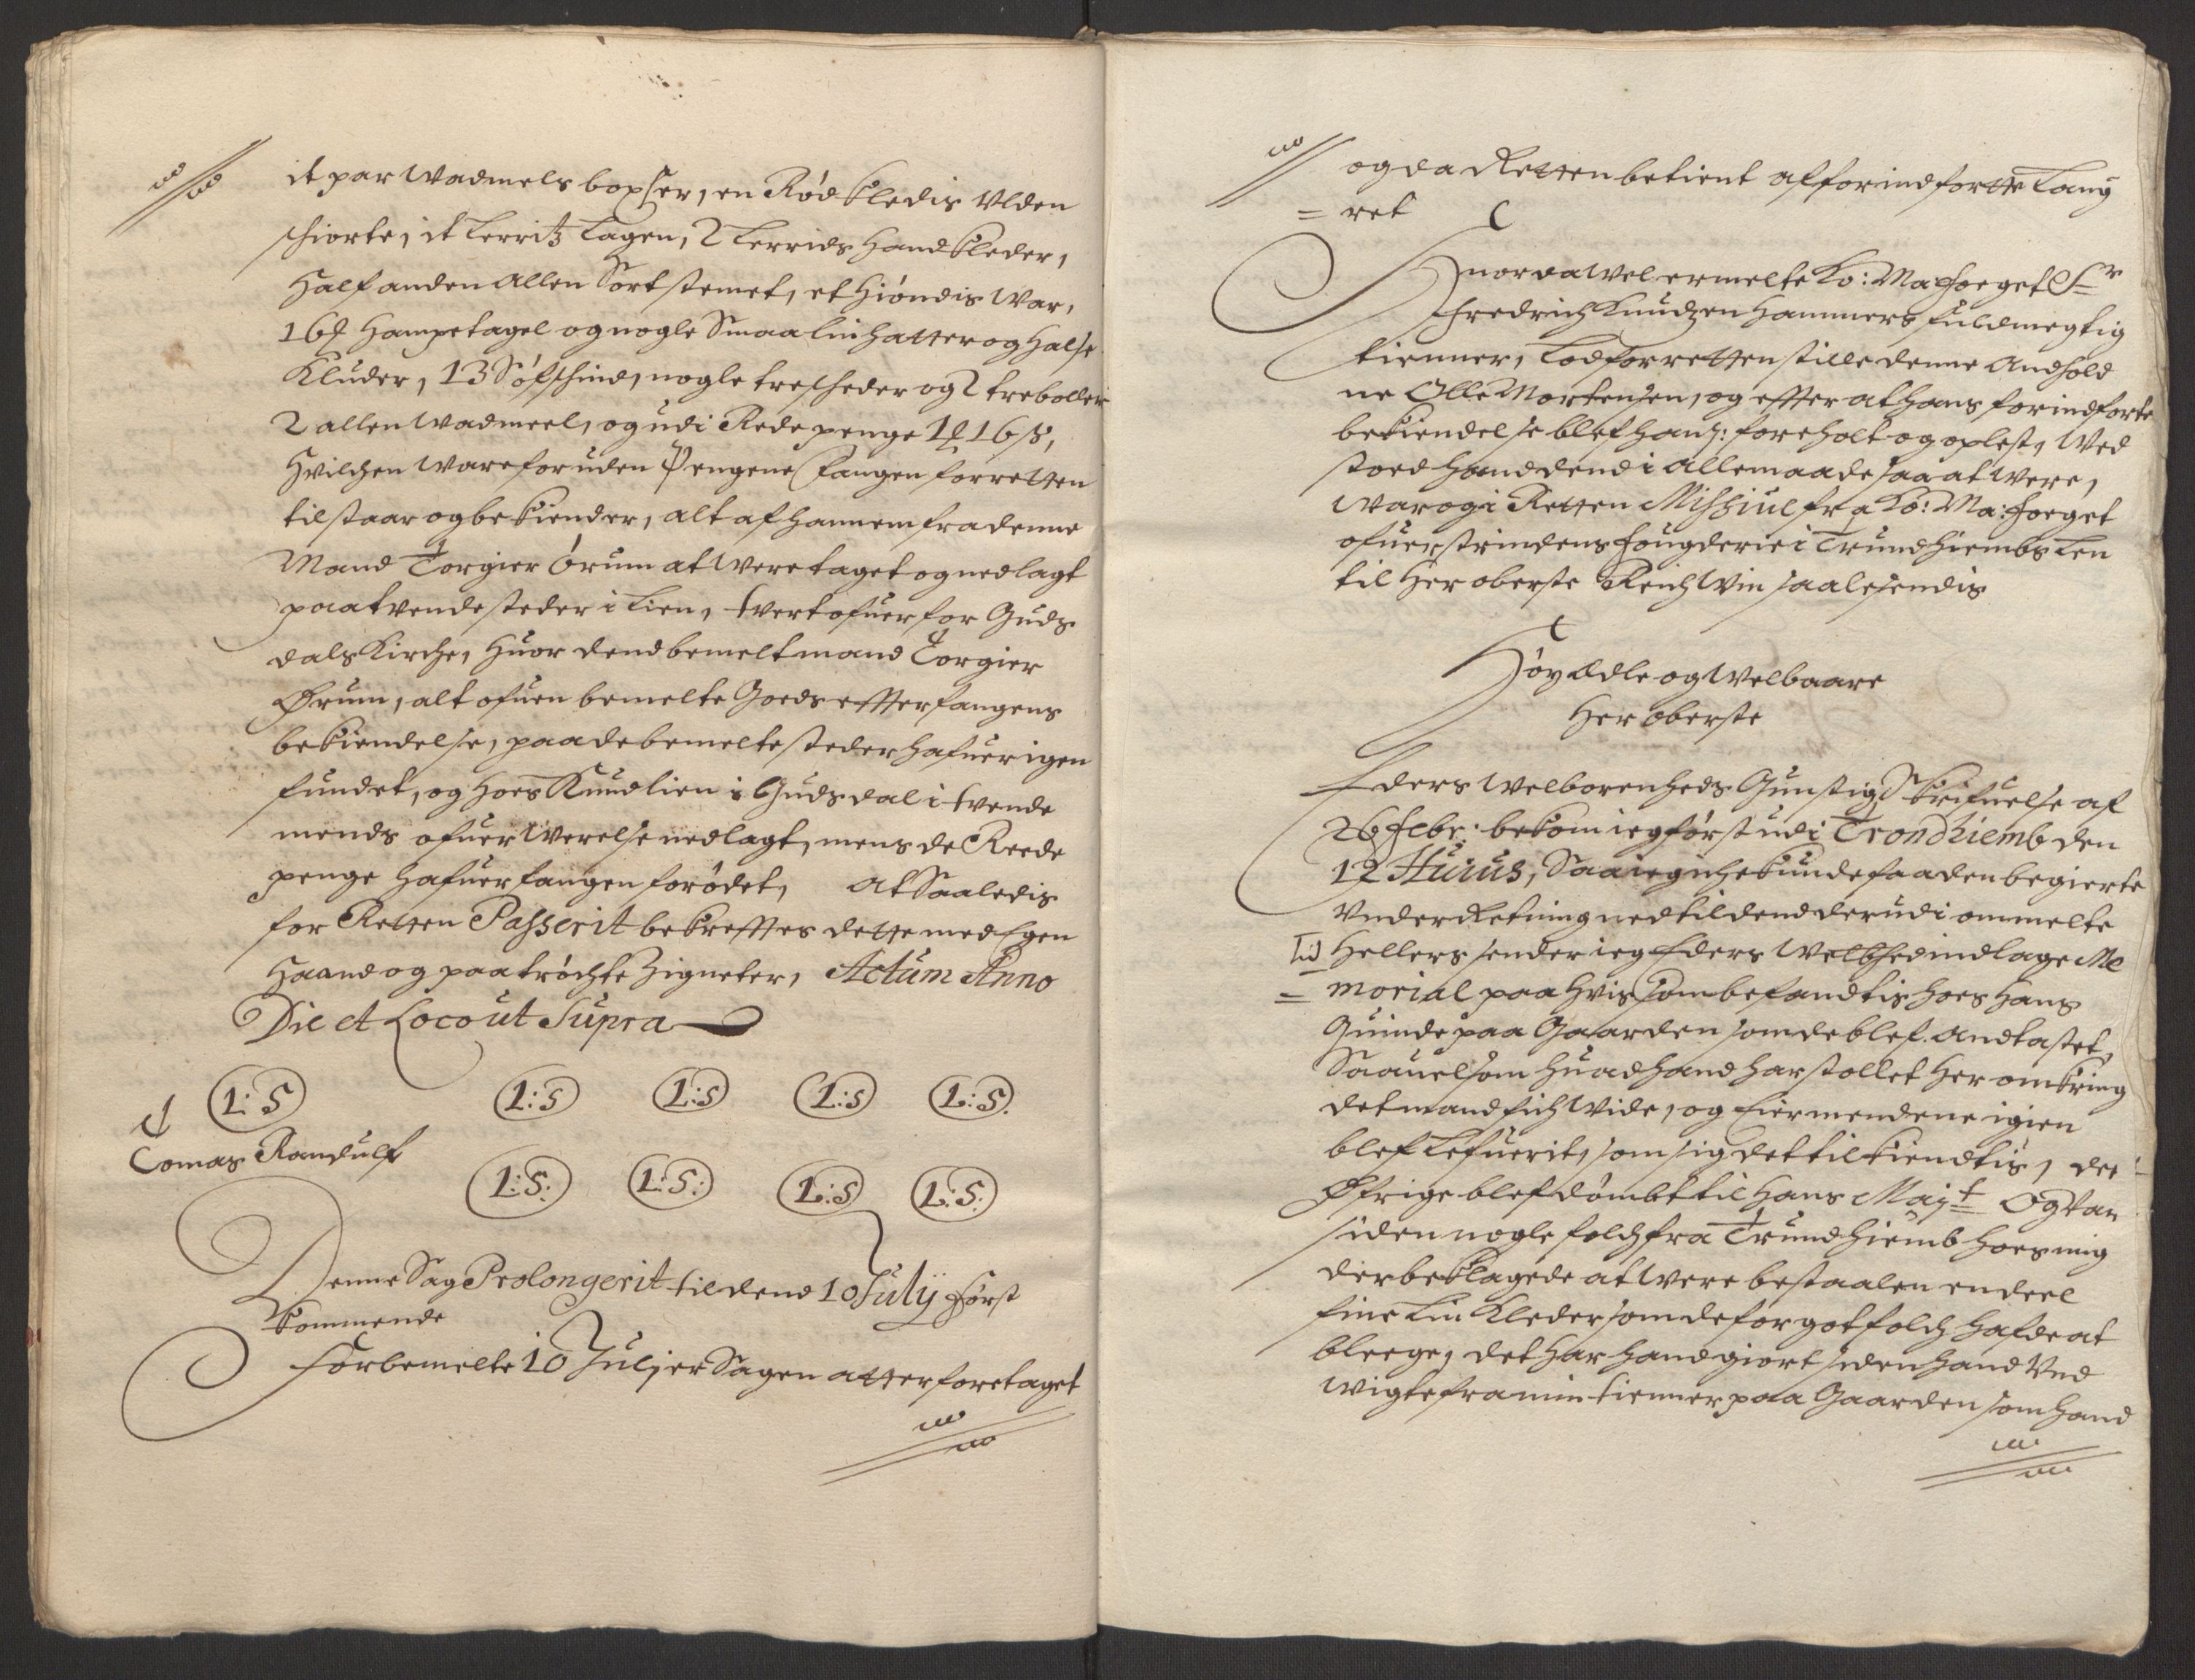 it par Wadmels boxser, en Rød kledis Ulden
schiorte, it Lerritz Lagen, 2 Lerrids handkleder,
Half anden Allen Sort stemet, et Hiøndis War,
16 Hampetagel og nogle Smaa linhatter og Halse
Kluder, 13 Søfschind, nogle trescheder og 2 treboller
2 allen Wadmeel, og udi Rede penge 1 16 s,
Hvilchen Ware foruden Pengene fangen for retten
tilstaar og bekiender, alt af hannem fra denne
Mand Torgier Ørum at Were taget og nedlagt
paa tvende steder i Lien, tvert ofuer for Guds
dals Kirche, huor dend bemelt mand Torgier
Ørum, alt ofuen bemelte Goeds effter fangens
bekiendelse, paa de bemelte steder hafuer igen
fundet, og hoes Knud lien i Gudsdal i tvende
mends ofuerWerelse nedlagt, mens de Reede
penge hafuer fangen forødet, At Saaledis
for Retten Passerit bekrefftes dette med Egen
Haand og paatrøchte Zigneter, Actum Anno
Die et Loco ut Supra
L: S L: S L: S L: S L: S.
Tomas Randulf
L: S: L: S: L: S L: S:
Denne Sag Prolongerit til dend 10 Julij først
kommende
Forbemelte 10 Julj er Sagen atter foretaget
og da Retten betient af forindførte Laug
= ret
Huor da Wel ermelte Ko: Ma: foeget Sr
Fredrich Knudzen Hammers fuldmegtig
tienner, Lod for retten stille denne Andhold
ne Olle Mortensen, og effter at hans forindførte
bekiendelse blef hans: foreholt og oplest, Ved
stoed hand dend i alle maade saa at Were,
War og i Retten Missiul fra Ko: Ma: foeget
ofuer strindens fougderie i Trundhiembs Len
til Her oberste Reichwin saalesendis
Høyædle og Welbaare
Her Oberste
Eders Welborenheds Gunstig Skrifuelse af
26 Febr: bekom ieg først udi Trondhiemb den
12 Huius, Saa ieg iche kunde faa den begierte
Underretning ned til dend derudi ommelte
Tid Hellers sender ieg Eders Welbhed indlage Me
= morial paa hvis som befandtis hoes hans
Quinde paa Gaarden som de blef Andtastet,
Saauel som huad hand har stollet her omkring
det mand fich Wide, og Eiermendene igien
blef Lefuerit, som sig det tilkiendtis, det
Øfrige blef dømbt til hans Mayt Og Var
siden nogle folch fra Trundhiemb hoes mig
der beklagede at Were bestaalen en deel
fine Lin Kleder som de for got folch hafde at
bleege, det har hand giort siden hand Und
Wigte fra min tienner paa Gaarden som hand